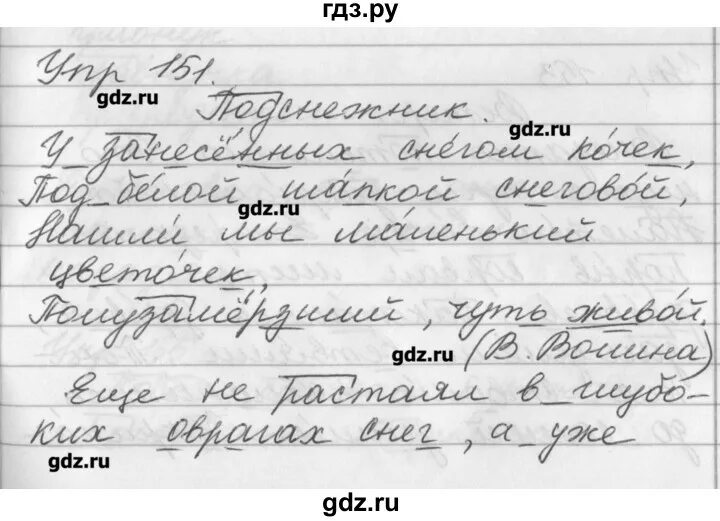 гдз.ру
Упр 151.
gdz.ru
Подснежник.
gdz.ru
У занесённых снегом кочек,
Под белой шапкой снеговой,
gdz.ru
Нашли мы маленький
цветочек,
Полузамёрзший, чуть живой.
gdz.ru
(В. Вошина)
Еще не растаял в глубо-
ких оврагах снег, а уже
gdz.ru
gdz.ru